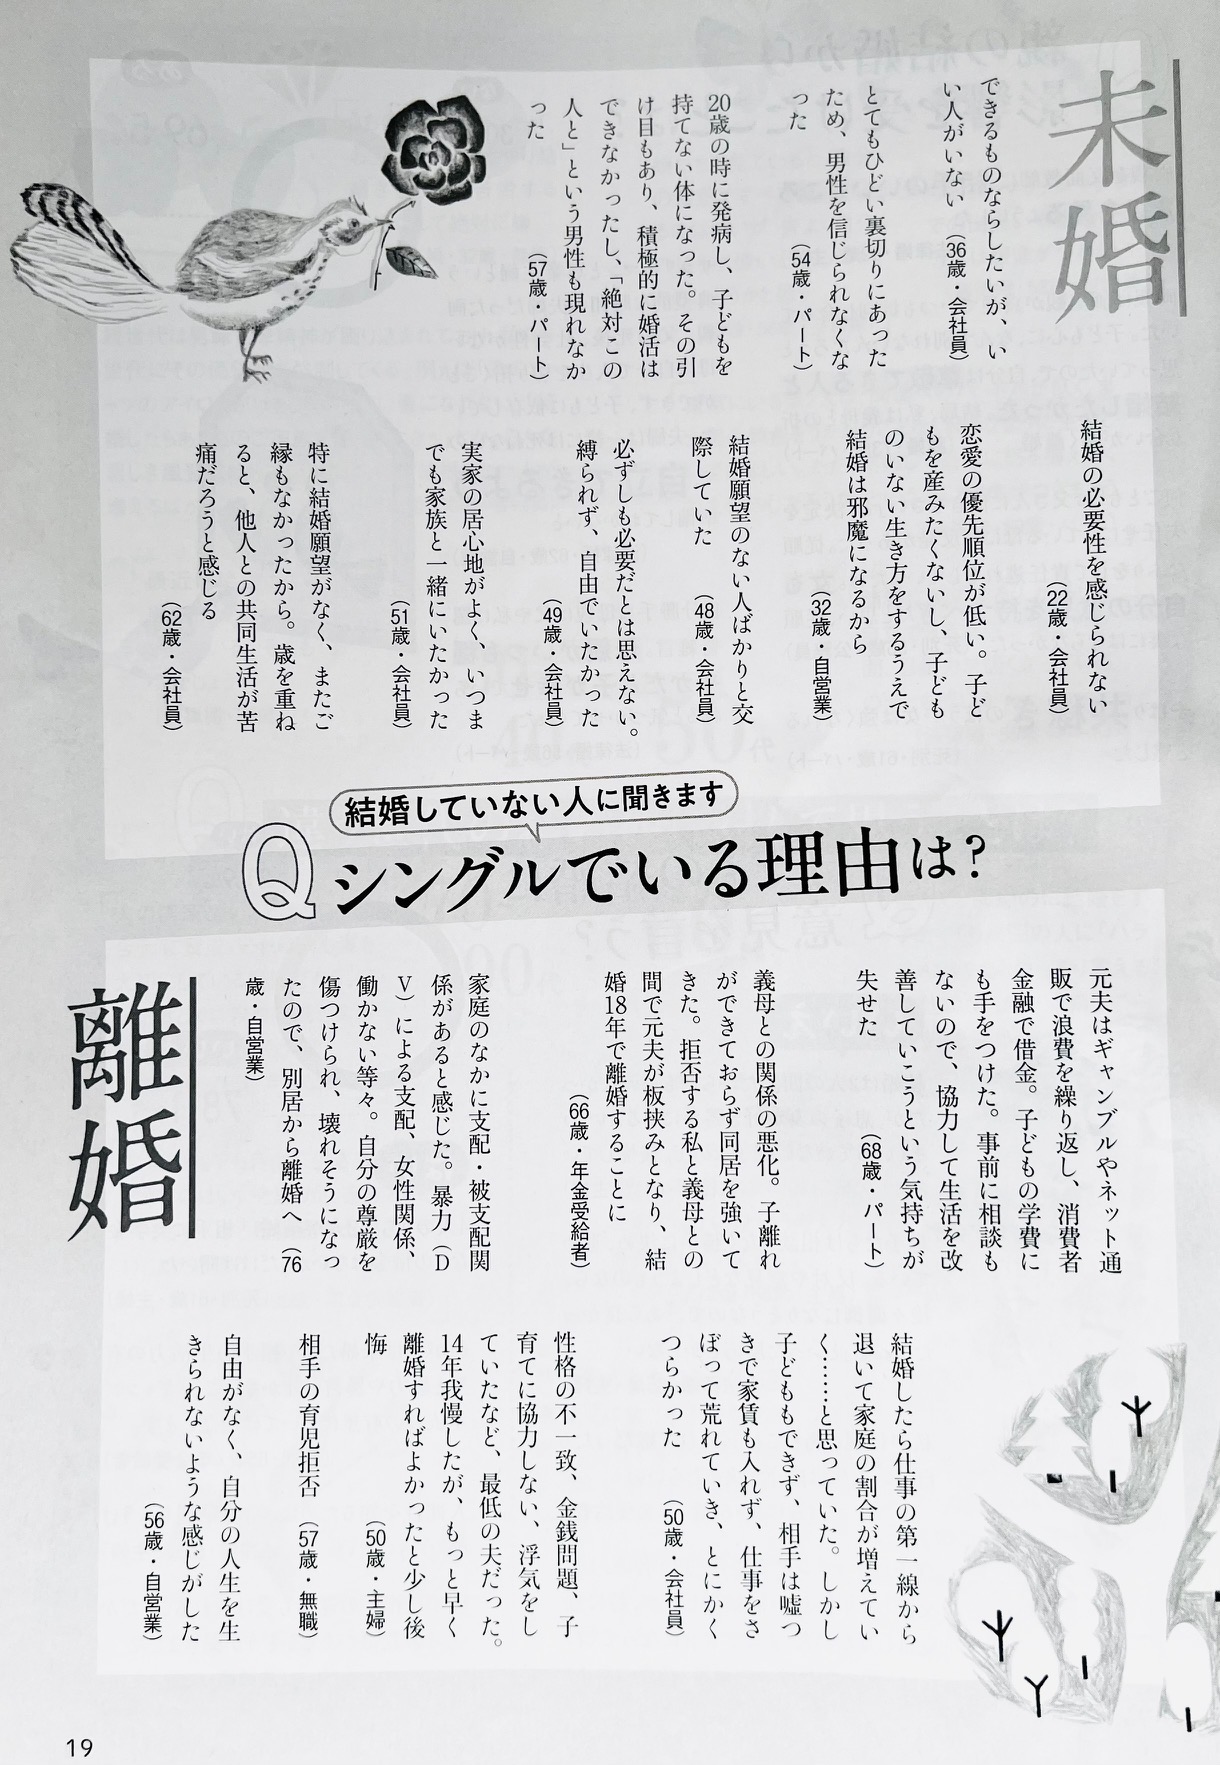 未婚
できるものならしたいが、い
い人がいない（36歳・会社員）
とてもひどい裏切りにあった
ため、男性を信じられなくな
った（54歳・パート）
20歳の時に発病し、子どもを
持てない体になった。その引
け目もあり、積極的に婚活は
できなかったし、「絶対この
人と」という男性も現れなか
った（57歳・パート）
結婚の必要性を感じられない
（22歳・会社員）
恋愛の優先順位が低い。子ど
もを産みたくないし、子ども
のいない生き方をするうえで
結婚は邪魔になるから
（32歳・自営業）
結婚願望のない人ばかりと交
際していた（48歳・会社員）
必ずしも必要だとは思えない。
縛られず、自由でいたかった
（49歳・会社員）
実家の居心地がよく、いつま
でも家族と一緒にいたかった
（51歳・会社員）
特に結婚願望がなく、またご
縁もなかったから。歳を重ね
ると、他人との共同生活が苦
痛だろうと感じる
（62歳・会社員）
結婚していない人に聞きます
Q シングルでいる理由は？
離婚
元夫はギャンブルやネット通
販で浪費を繰り返し、消費者
金融で借金。子どもの学費に
も手をつけた。事前に相談も
ないので、協力して生活を改
善していこうという気持ちが
失せた（68歳・パート）
義母との関係の悪化。子離れ
ができておらず同居を強いて
きた。拒否する私と義母との
間で元夫が板挟みとなり、結
婚18年で離婚することに
（66歳・年金受給者）
家庭のなかに支配・被支配関
係があると感じた。暴力（D
V）による支配、女性関係、
働かない等々。自分の尊厳を
傷つけられ、壊れそうになっ
たので、別居から離婚へ（76
歳・自営業）
結婚したら仕事の第一線から
退いて家庭の割合が増えてい
く……と思っていた。しかし
子どももできず、相手は嘘つ
きで家賃も入れず、仕事をさ
ぼって荒れていき、とにかく
つらかった（50歳・会社員）
性格の不一致、金銭問題、子
育てに協力しない、浮気をし
ていたなど、最低の夫だった。
14年我慢したが、もっと早く
離婚すればよかったと少し後
悔（50歳・主婦）
相手の育児拒否（57歳・無職）
自由がなく、自分の人生を生
きられないような感じがした
（56歳・自営業）
19